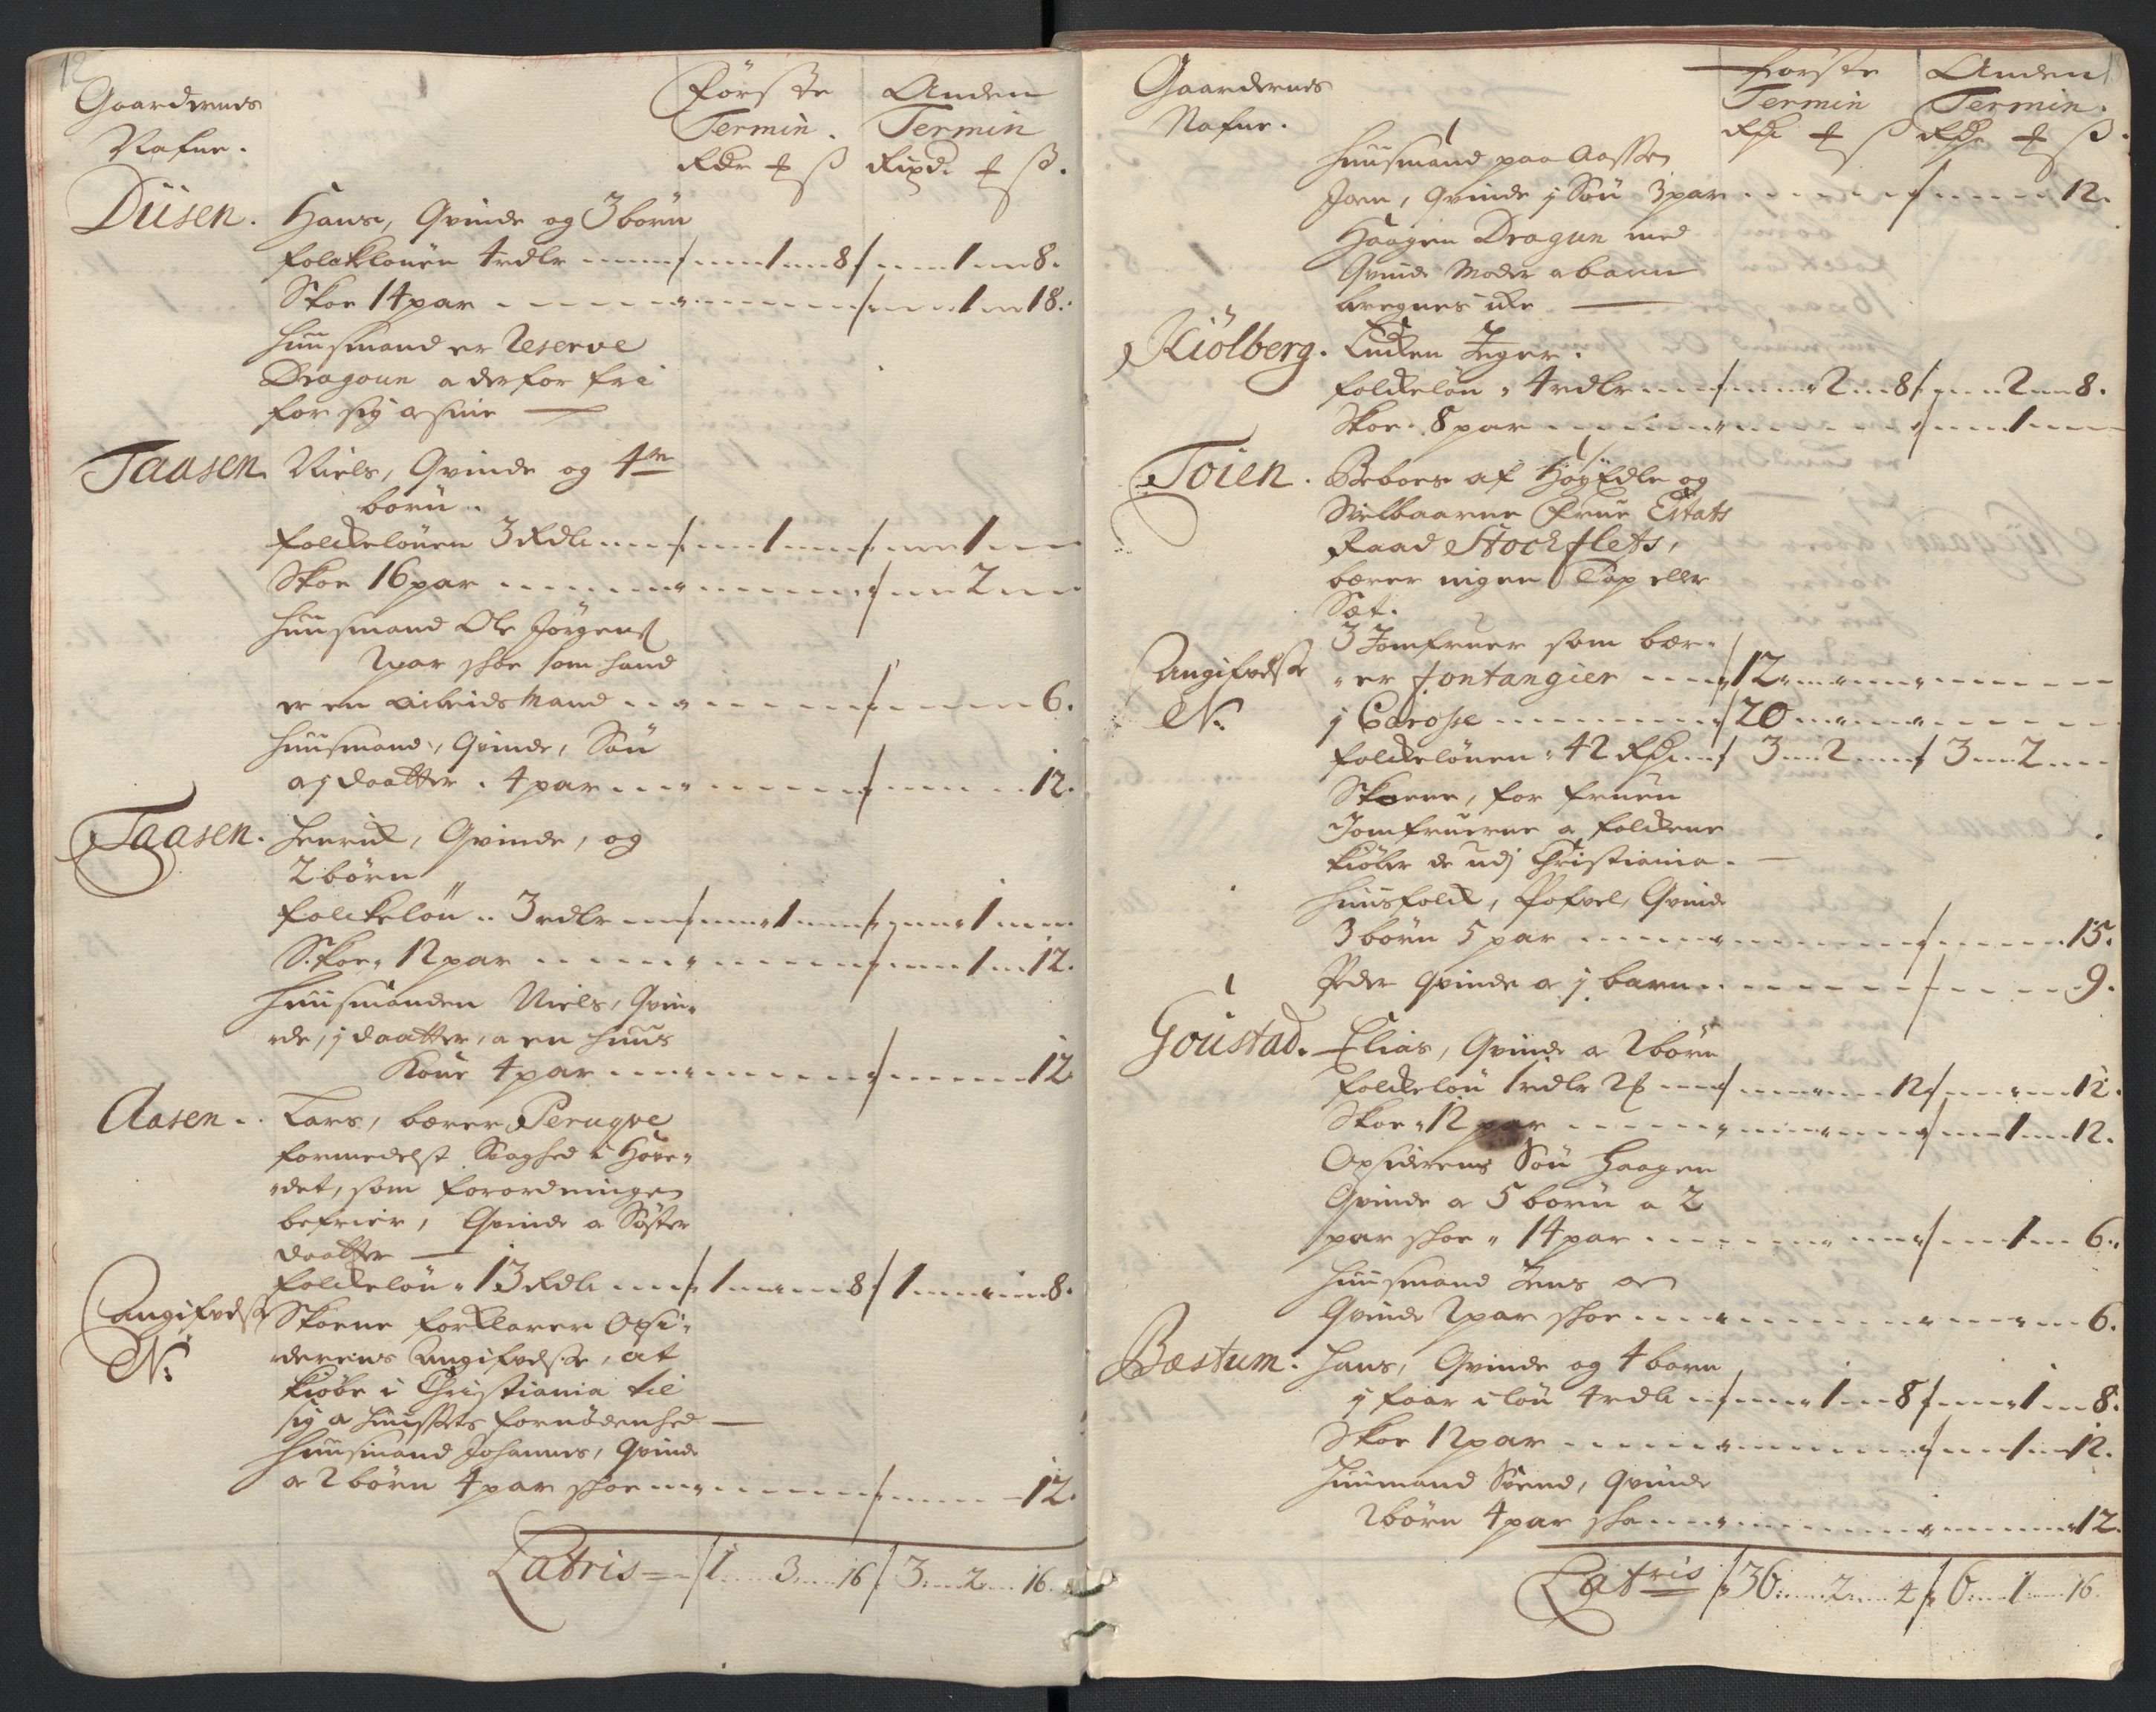 12
Gaardernes
Nafne.
Förste Termin. Anden Termin
Rdr ß Rixd. ß.
Düsen. Hans, Qvinde og 3 börn
folckelönen 4 rdlr 1 8 1 8.
Skoe 14 par 1 18.
Huusmand er Reserve
Dragoun a derfor fri
for sig a sine
Taasen. Niels, Qvinde og 4re
börn.
folckelönen 3 Rdlr 1 1
Skoe 16 par 2
Huusmand Ole Jörgens
2 par skoe som hand
er en arbeids Mand 6.
Huusmand, Qvinde, Sön
a j daatter. 4 par 12.
Taasen. Henrick, Qvinde, og
2 börn
folckelön 3 rdlr 1 1
Skoe 12 par 1 12.
Huusmanden Niels, Qvin-
de, j daatter, a en huus
Kone 4 par 12
Aasen. Lars, bærer Peruqve
formedelst Svaghed i Hove-
det, som forordningen
befrier, Qvinde a Söster
daatter
folckelön 13 Rdlr 1 8 1 8.
Angifvelse N: Skoene forklarer Opsi-
derens Angifvelse, at
kiöbe i Christiania til
sig a huusets fornödenhed
Huusmand Johannes, Qvinde
a 2 börn 4 par skoe 12.
Latris 1 3 16 3 2 16.
Gaardernes
Nafne.
Förste Termin Anden Termin.
Rdr ß Rdr ß.
Huusmand paa Aassen
Joen, Qvinde j Sön 3 par 12.
Haagen Dragun med
Qvinde Moder a barn
bregnes icke
Kiölberg. Lucken Jeger.
folckelön 4 rdlr 2 8 2 8.
Skoe. 8 par 1
Toien. Beboes af HöyEdle og
Velbaarne Frue Etats
Raad Stochflets,
bærer ingen Top eller
Sæt.
Angifvelse N: 3 Jomfruer som bær-
er fontangier 12
j Carosse 20
folckelönen 42 Rdr 3 2 3 2
Skoene, for fruen
Jomfruerne a folckene
kiöber de udj Christiania.
Huusfolck, Pofvel, Qvinde
3 börn 5 par 15.
Peder Qvinde a j barn 9.
Goustad. Elias, Qvinde a 2 börn
folckelön 1 rdlr 2 12 12.
Skoe 12 par 1 12.
Opsiderens Sön Haagen
Qvinde a 5 börn a 2
par skoe 14 par 1 6.
Huusmand Jens a
Qvinde 2 par skoe 6.
Bæstum. Hans, Qvinde og 4 börn
j faar i lön 4 rdlr 1 8 1 8.
Skoe 12 par 1 12.
Huusmand Svend, Qvinde
2 börn 4 par skoe 12.
Latris 36 2 4 6 1 16.